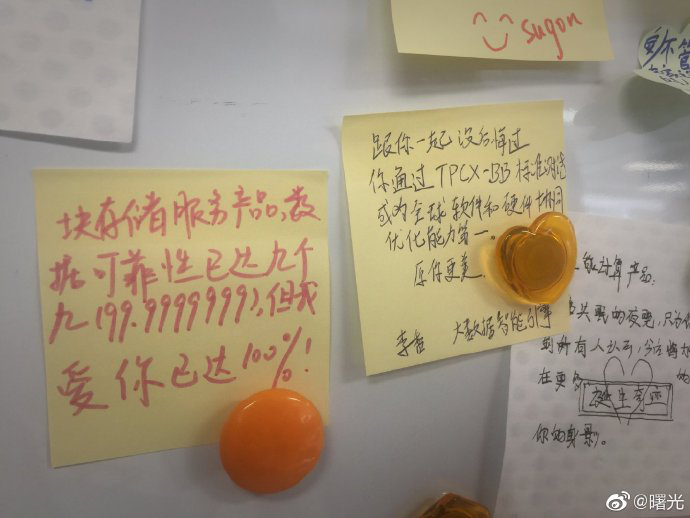 sugon
块存储服务产品,数
据可靠性已达九个
九(99.9999999),但我
爱你已达100%!
跟你一起没后悔过
你通过TPCX-BB标准测试
成为全球软件和硬件协同
优化能力第一。
愿你更美
李香 大数据智能引擎
计算产品:
共眠的夜晚,只为
到所有人认可,
在更多 的
诞生奇迹
你的身影。
@曙光